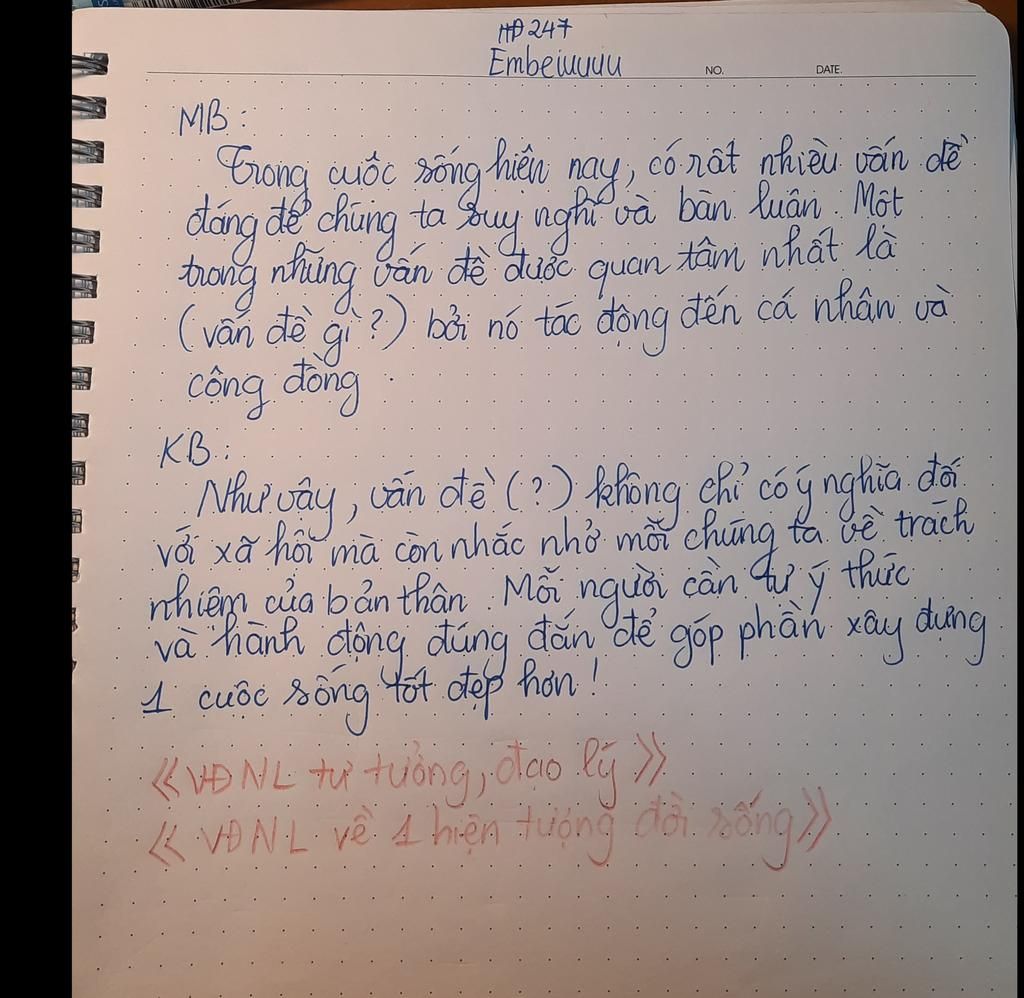 HĐ 247
Embeiuuuu
NO. DATE.
MB:
Trong cuộc sống hiện nay, có rất nhiều vấn đề
đáng để chúng ta suy nghĩ và bàn luận. Một
trong những vấn đề được quan tâm nhất là
(vấn đề gì?) bởi nó tác động đến cá nhân và
cộng đồng.
KB:
Như vậy, vấn đề (?) không chỉ có ý nghĩa đối
với xã hội mà còn nhắc nhở mỗi chúng ta về trách
nhiệm của bản thân. Mỗi người cần tự ý thức
và hành động đúng đắn để góp phần xây dựng
1 cuộc sống tốt đẹp hơn!
《VĐNL tư tưởng, đạo lý》
《VĐNL về 1 hiện tượng đời sống》